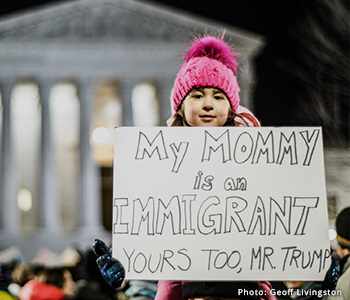 My MOMMY
is an
IMMIGRANT
YOURS TOO, MR. TRUMP
Photo: Geoff Livingston